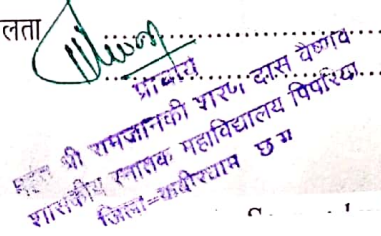 लता
प्राचार्य
महंत श्री रामजानकी शरण दास वैष्णव
शासकीय स्नातक महाविद्यालय पिपरिया
जिला-कबीरधाम छ ग